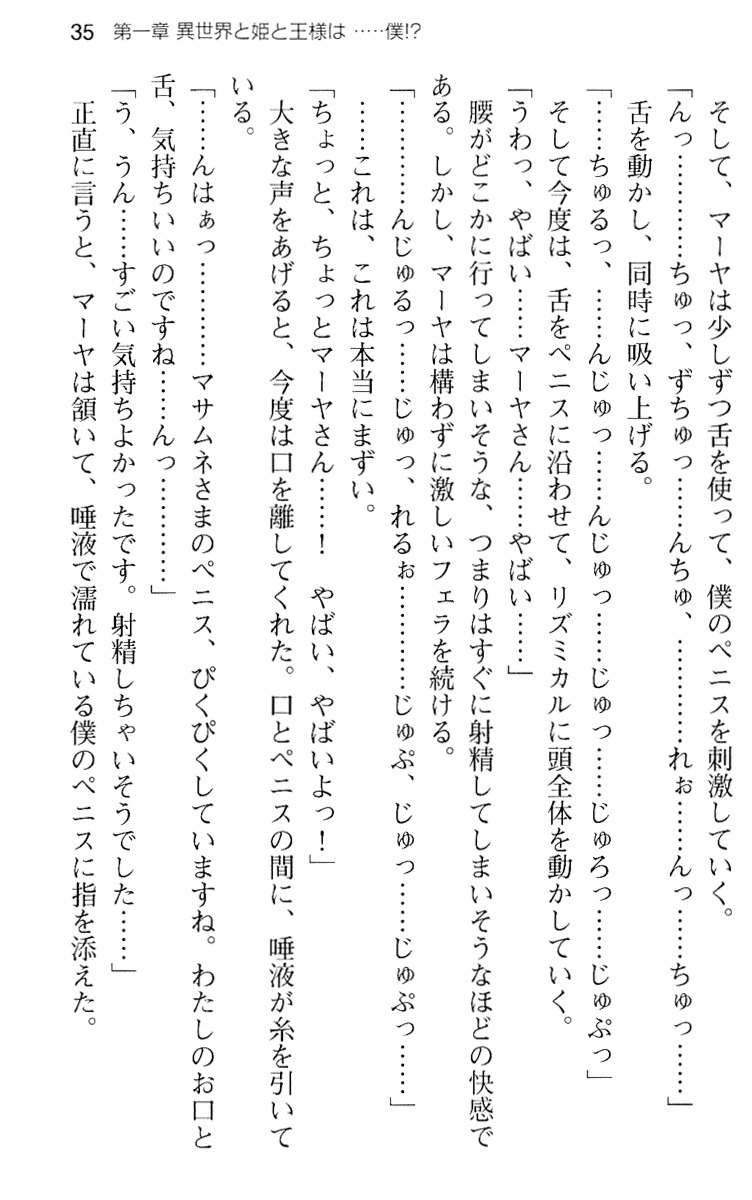 35 第一章 異世界と姫と王様は ……僕!?
そして、マーヤは少しずつ舌を使って、僕のペニスを刺激していく。
「んっ…………ちゅっ、ずちゅっ……んちゅ、…………れぉ……んっ……ちゅっ……」
舌を動かし、同時に吸い上げる。
「……ちゅるっ、……んじゅっ……んじゅっ……じゅっ……じゅろっ……じゅぷっ」
そして今度は、舌をペニスに沿わせて、リズミカルに頭全体を動かしていく。
「うわっ、やばい……マーヤさん……やばい……」
腰がどこかに行ってしまいそうな、つまりはすぐに射精してしまいそうなほどの快感で
ある。しかし、マーヤは構わずに激しいフェラを続ける。
「…………んじゅるっ……じゅっ、れるぉ…………じゅぷ、じゅっ……じゅぷっ……」
……これは、これは本当にまずい。
「ちょっと、ちょっとマーヤさん……！　やばい、やばいよっ！」
大きな声をあげると、今度は口を離してくれた。口とペニスの間に、唾液が糸を引いて
いる。
「……んはぁっ…………マサムネさまのペニス、ぴくぴくしていますね。わたしのお口と
舌、気持ちいいのですね……んっ…………」
「う、うん……すごい気持ちよかったです。射精しちゃいそうでした……」
正直に言うと、マーヤは頷いて、唾液で濡れている僕のペニスに指を添えた。